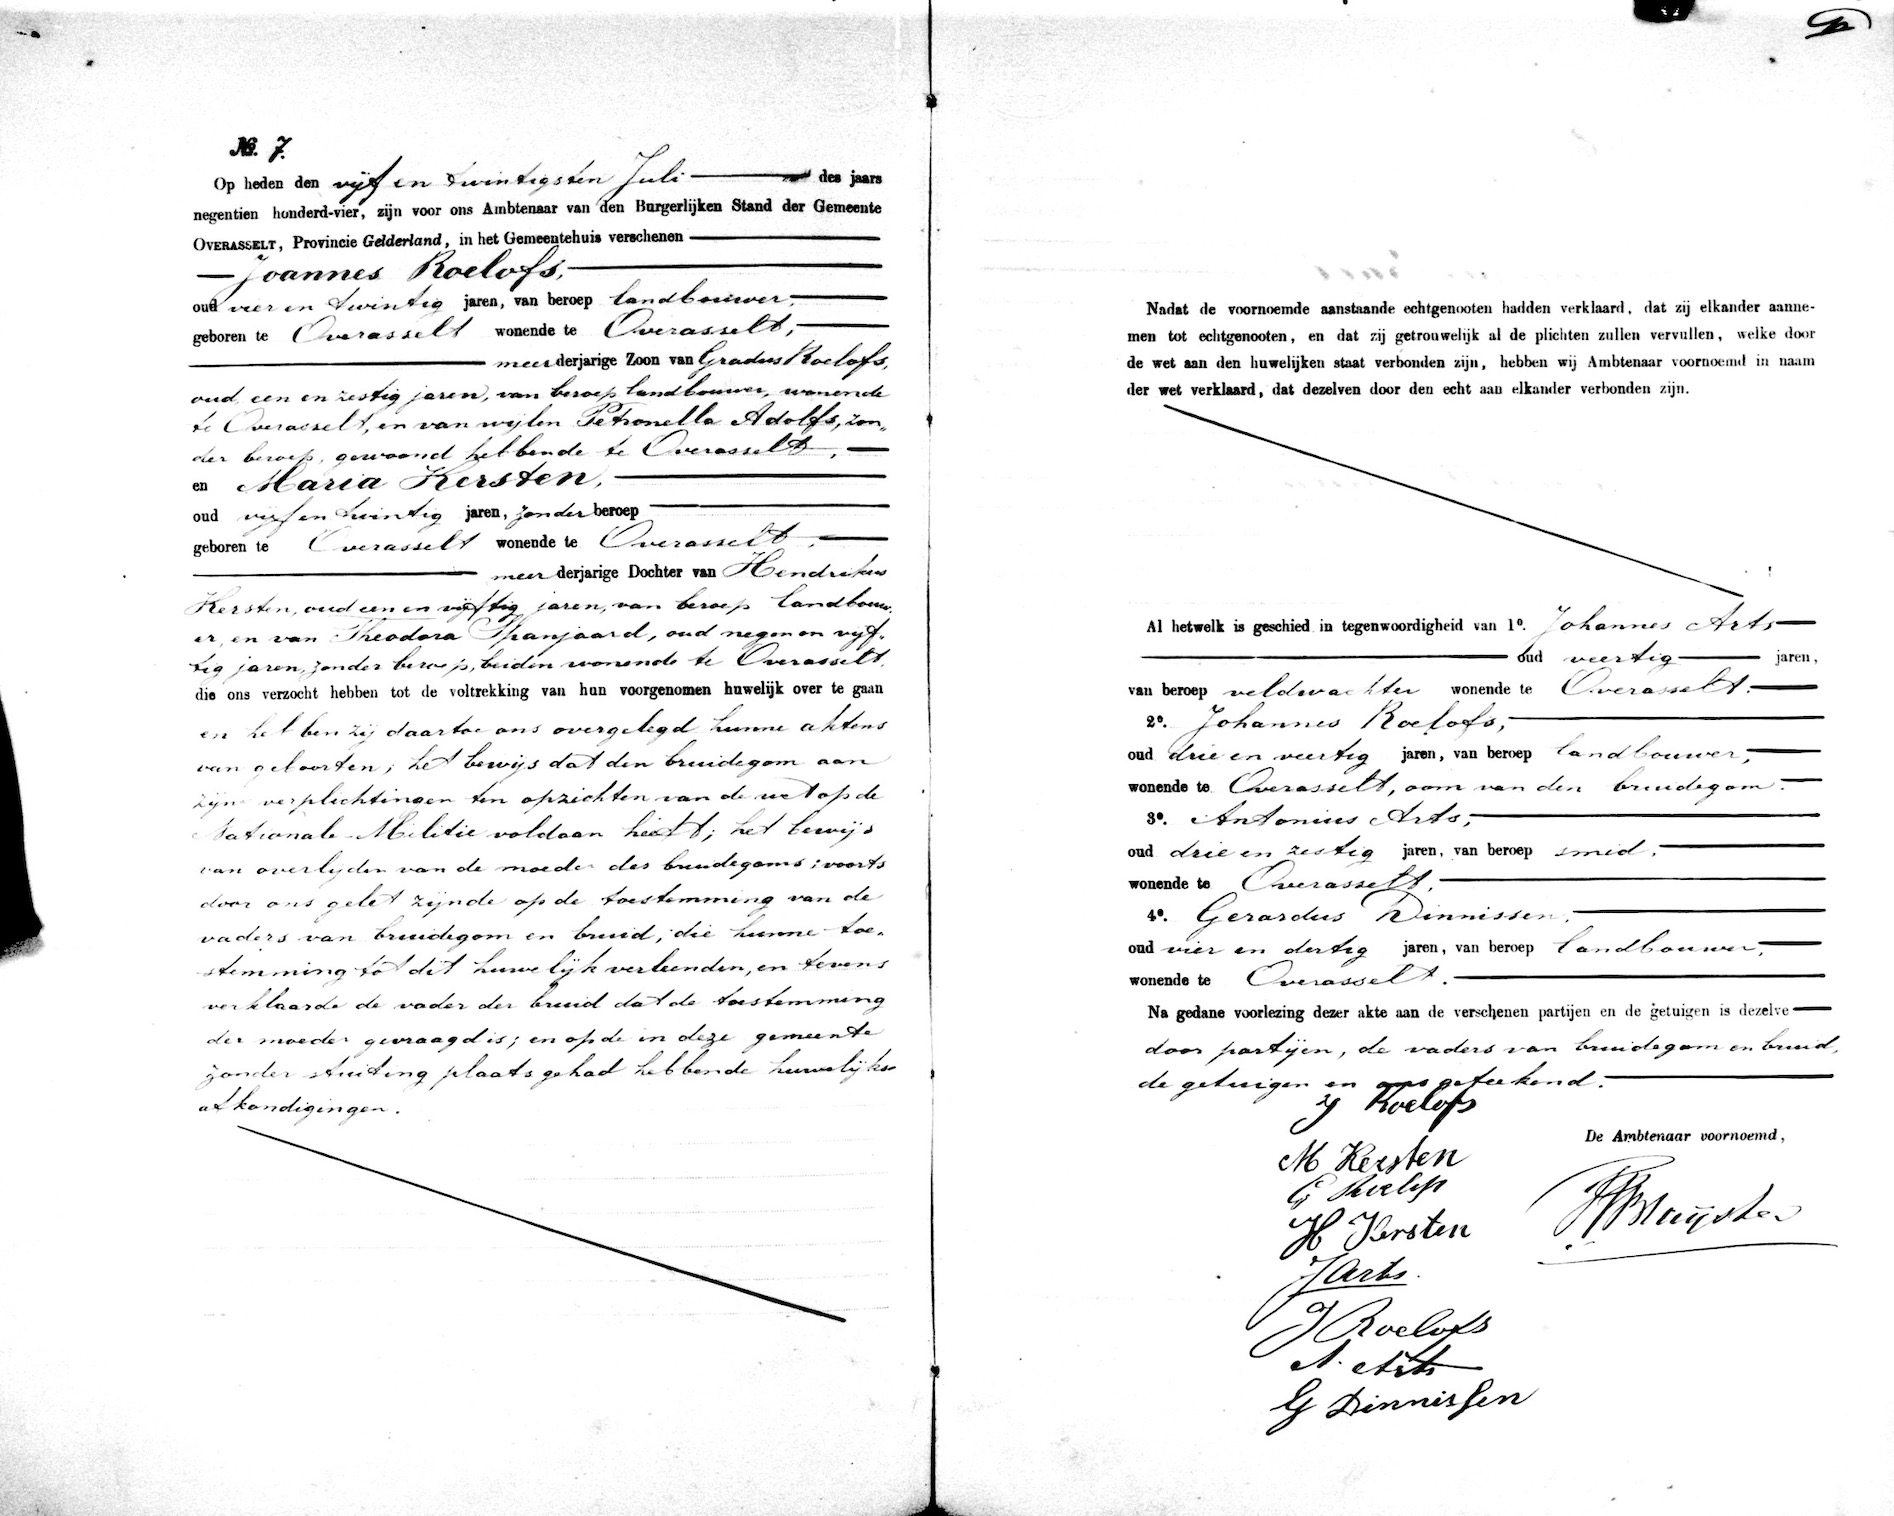 No. 7.
Op heden den vijf en twintigsten Juli des jaars
negentien honderd-vier, zijn voor ons Ambtenaar van den Burgerlijken Stand der Gemeente
OVERASSELT, Provincie Gelderland, in het Gemeentehuis verschenen
Joannes Roelofs,
oud vier en twintig jaren, van beroep landbouwer,
geboren te Overasselt wonende te Overasselt,
meerderjarige Zoon van Gradus Roelofs,
oud een en zestig jaren, van beroep landbouwer, wonende
te Overasselt, en van wijlen Petronella Adolfs, zon„
der beroep, gewoond hebbende te Overasselt,
en Maria Kersten,
oud vijf en twintig jaren, zonder beroep
geboren te Overasselt wonende te Overasselt,
meerderjarige Dochter van Hendrikus
Kersten, oud een en vijftig jaren, van beroep landbouw„
er, en van Theodora Spanjaard, oud negen en vijf„
tig jaren, zonder beroep, beiden wonende te Overasselt,
die ons verzocht hebben tot de voltrekking van hun voorgenomen huwelijk over te gaan
en hebben zij daartoe ons overgelegd hunne aktens
van geboorten; het bewijs dat den bruidegom aan
zijne verplichtingen ten opzichten van de wet op de
Nationale Militie voldaan heeft; het bewijs
van overlijden van de moeder des bruidegoms; voorts
door ons gelet zijnde op de toestemming van de
vaders van bruidegom en bruid, die hunne toe„
stemming tot dit huwelijk verleenden, en tevens
verklaarde de vader der bruid dat de toestemming
der moeder gevraagd is; en op de in deze gemeente
zonder stuiting plaats gehad hebbende huwelijks„
afkondigingen.
Nadat de voornoemde aanstaande echtgenooten hadden verklaard, dat zij elkander aanne-
men tot echtgenooten, en dat zij getrouwelijk al de plichten zullen vervullen, welke door
de wet aan den huwelijken staat verbonden zijn, hebben wij Ambtenaar voornoemd in naam
der wet verklaard, dat dezelven door den echt aan elkander verbonden zijn.
Al hetwelk is geschied in tegenwoordigheid van 1o. Johannes Arts
oud veertig jaren,
van beroep veldwachter wonende te Overasselt.
2o. Johannes Roelofs,
oud drie en veertig jaren, van beroep landbouwer,
wonende te Overasselt, oom van den bruidegom.
3o. Antonius Arts,
oud drie en zestig jaren, van beroep smid,
wonende te Overasselt,
4o. Gerardus Dinnissen,
oud vier en dertig jaren, van beroep landbouwer,
wonende te Overasselt.
Na gedane voorlezing dezer akte aan de verschenen partijen en de getuigen is dezelve
door partijen, de vaders van bruidegom en bruid,
de getuigen en ons geteekend.
J Roelofs
De Ambtenaar voornoemd,
M Kersten
G Roelofs
H Kersten
J Arts.
J Roelofs
A. Arts
G Dinnissen